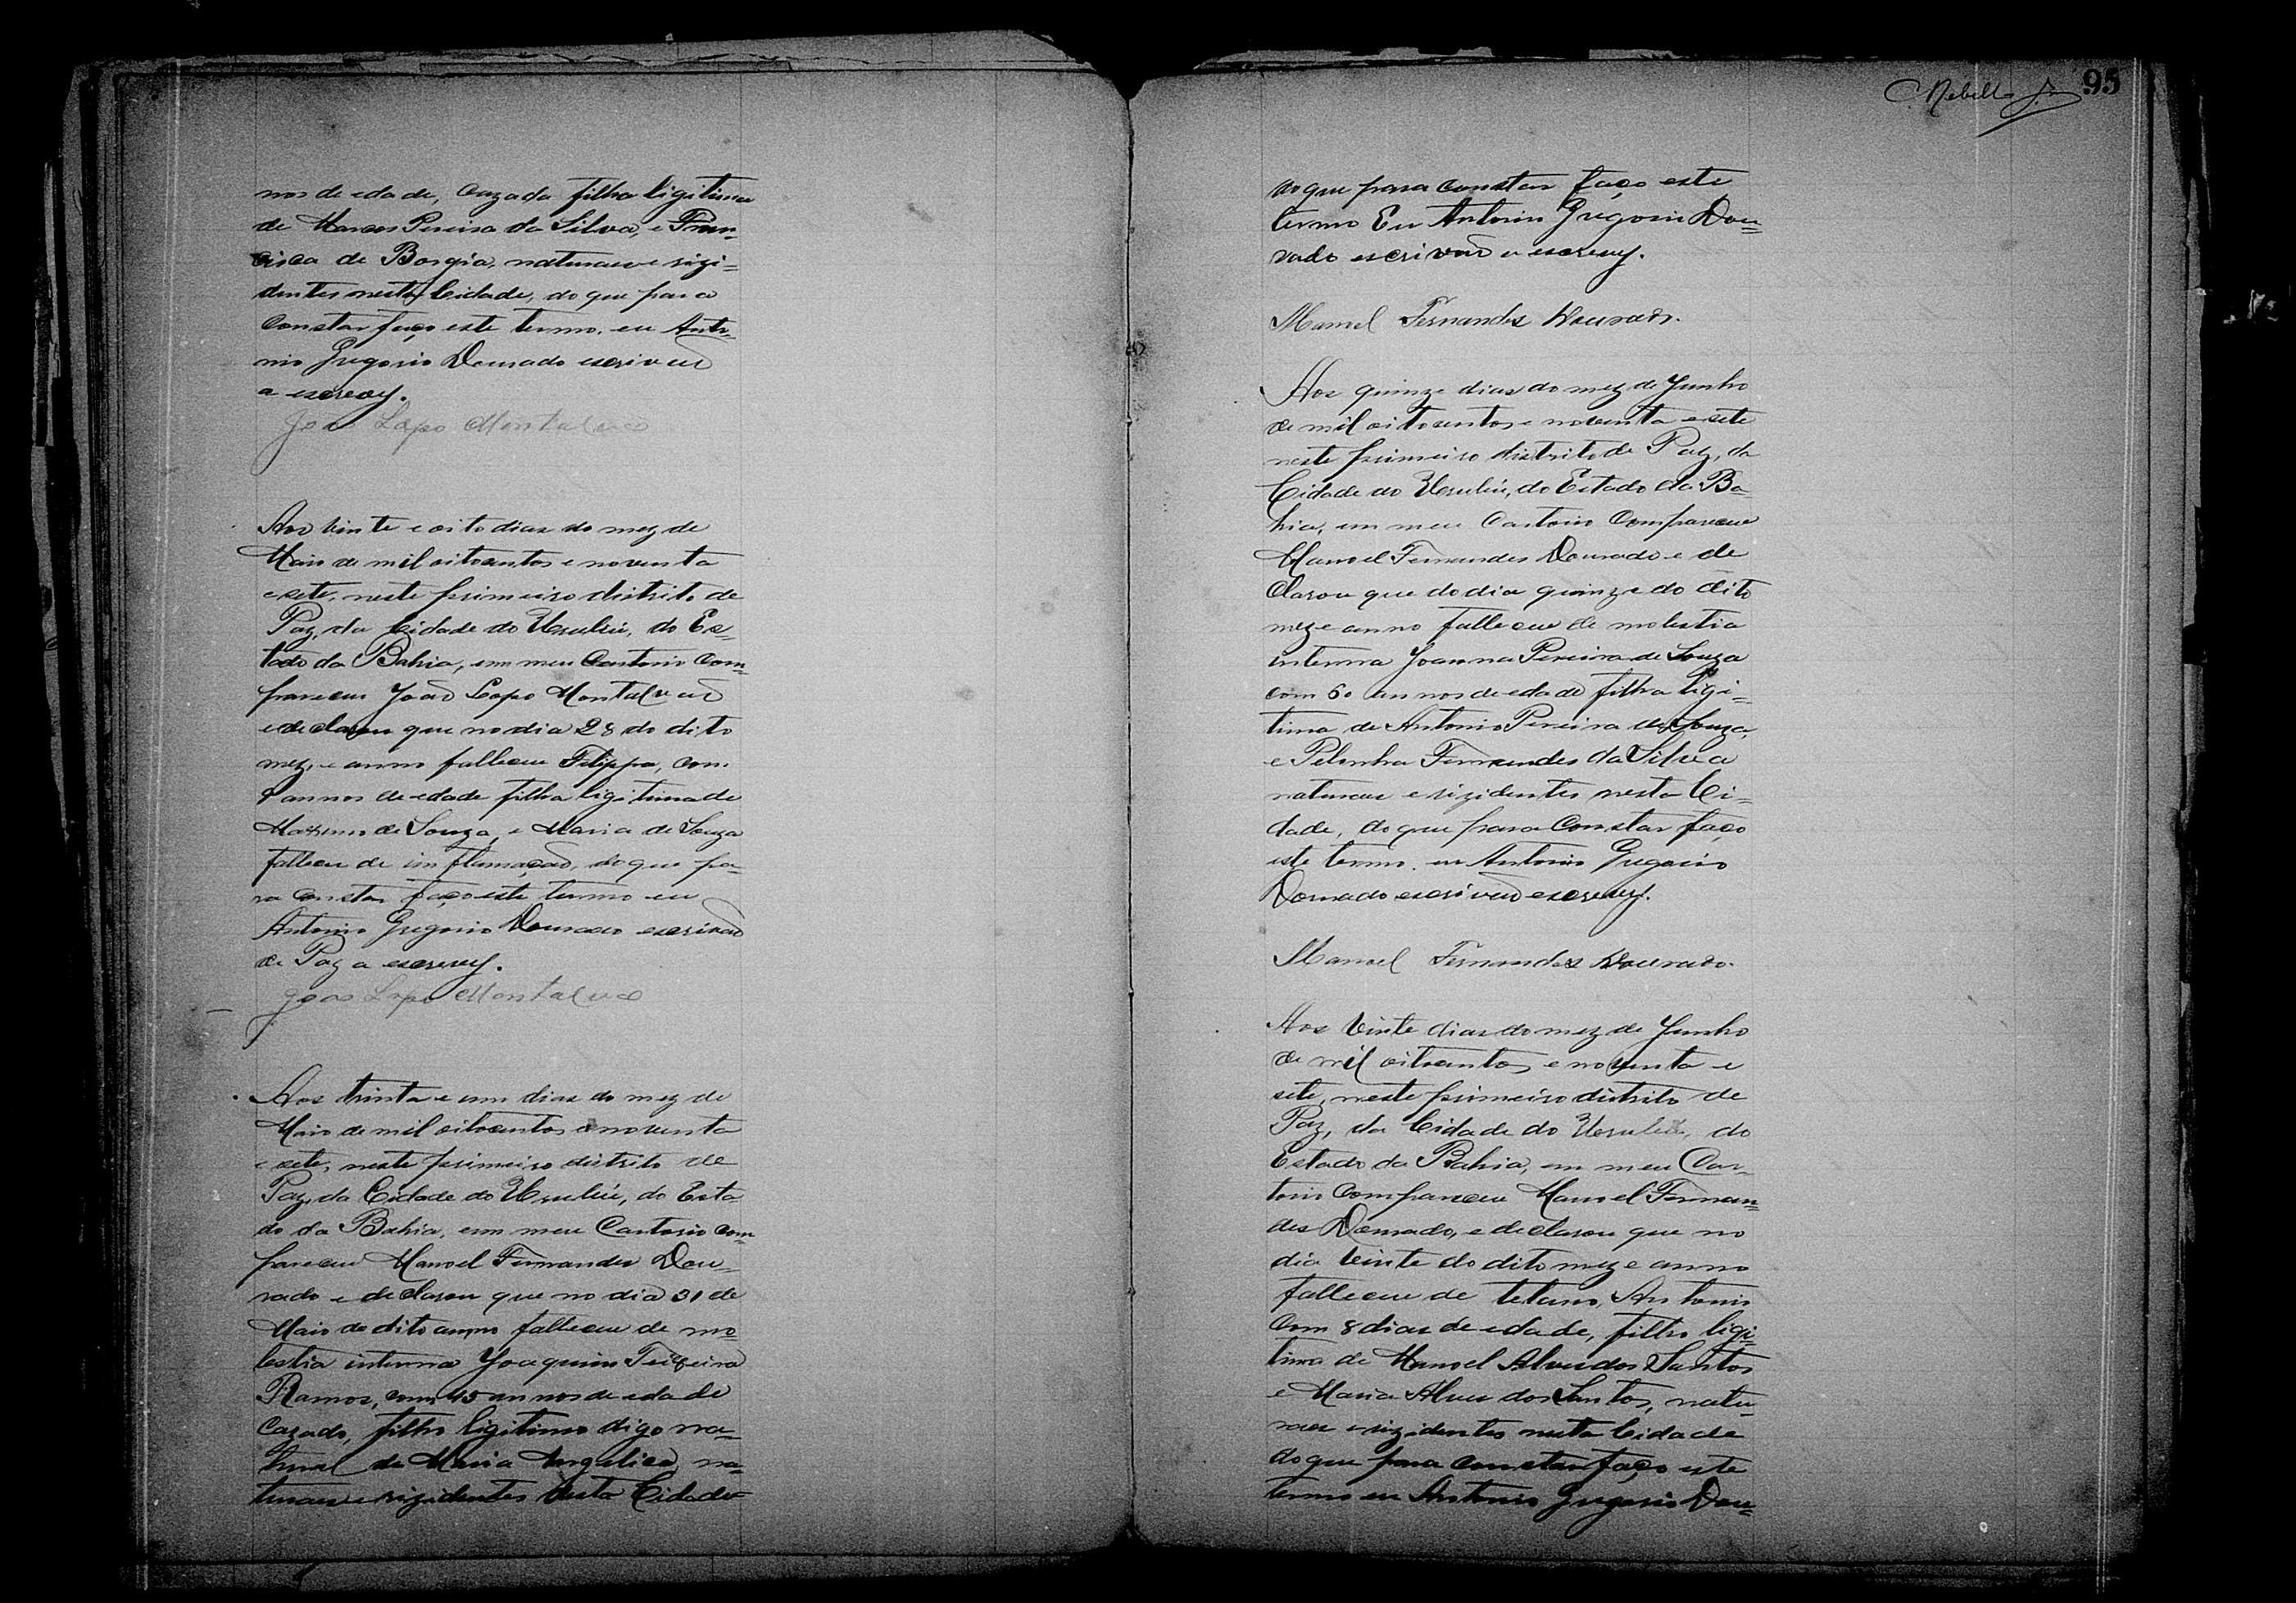 nos de edade, cazada filha ligitima
de Marcos Pereira da Silva, e Fran=
cisca de Borgia, naturaes e rizi=
dentes nesta Cidade, do que para
constar faço este termo. eu Anto=
nio Gregorio Dourado escrivaõ
a escrevy.
Joaõ Lopo Montalvaõ
Aos vinte e oito dias do mez de
Maio de mil oitocentos e noventa
e sete, neste primeiro distrito de
Paz, da Cidade do Urubú, do Es=
tado da Bahia, em meu Cartorio Com=
pareceu Joaõ Lopo Montalvaõ
e declarou que no dia 28 do dito
mez, e anno falleceu Filippa, com
annos de edade filha ligitima de
de Souza, e Maria de Souza
falleceu de inflamaçaõ, do que pa=
ra constar faço este termo eu
Antonio Gregorio Dourado escrivaõ
de Paz a escrevy.
Joao Lopo Montalvao
Aos trinta e um dias do mez de
Maio de mil oitocentos e noventa
e sete, neste primeiro distrito de
Paz, da Cidade do Urubú, do Esta
do da Bahia, em meu Cartorio com=
pareceu Manoel Fernandes Dou=
rado e declarou que no dia 31 de
Maio do dito anno falleceu de mo=
lestia interna Joaquim Teixeira
Ramos, com 45 annos de edade
Cazado, filho ligitimo digo na=
tural de Maria Angelica, na=
turaes e rizidentes nesta Cidade
95
C. Rebello Jr
do que para constar faço este
termo Eu Antonio Gregorio Dou=
rado escrivaõ a escrevy.
Manoel Fernandes Dourado.
Aos quinze dias do mez de Junho
de mil oitocentos e noventa e sete
neste primeiro distrito de Paz, da
Cidade do Urubú, do Estado da Ba=
hia, em meu Cartorio Compareceu
Manoel Fernandes Dourado e de
clarou que do dia quinze do dito
mez e anno falleceu de molestia
interna Joanna Pereira de Souza
com 60 annos de edade filha ligi=
tima de Antonio Pereira de Souza,
e Fernandes da Silva
naturaes e rizidentes nesta Ci=
dade, do que para Constar faço
este termo. eu Antonio Gregorio
Dourado escrivaõ escrevy.
Manoel Fernandes Dourado.
Aos Vinte dias do mez de Junho
de mil oitocentos e noventa e
sete, neste primeiro distrito de
Paz, da Cidade do Urubú, do
Estado da Bahia, em meu Car=
torio Compareceu Manoel Fernan=
des Dourado, e declarou que no
dia Vinte do dito mez e anno
falleceu de tetano, Antonio
Com 8 dias de edade, filho ligi=
timo de Manoel Alves dos Santos
e Maria Alves dos Santos, natu=
raes e rizidentes nesta Cidade
do que para constar faço este
termo eu Antonio Gregorio Dou=